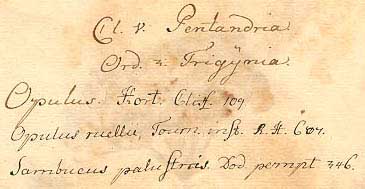 Cl. V. Pentandria.
Ord. 3. Trigÿnia.
Opulus. Hort. Cliff. 109.
Opulus ruellii, Tourn. inst. R. H. 607.
Sambucus palustris. Dod pempt 846.